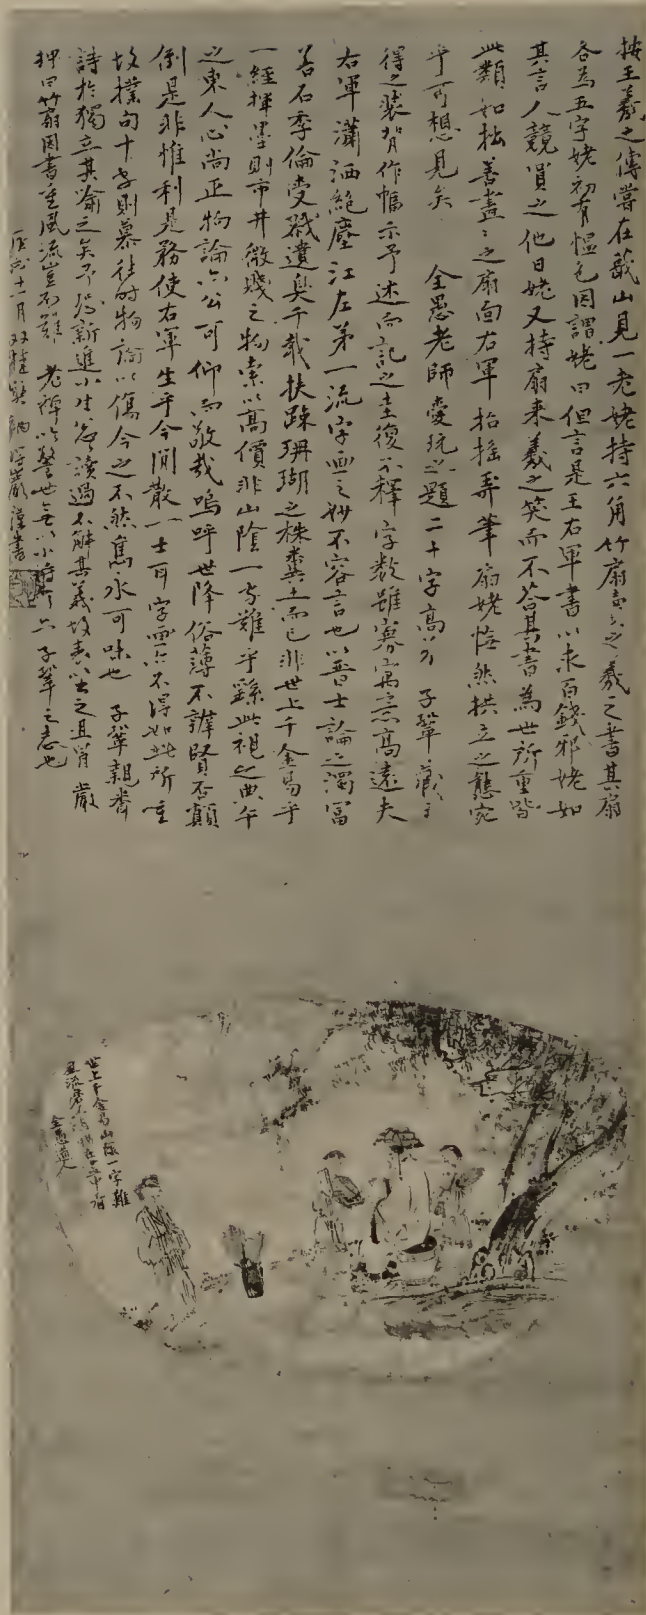 按王羲之傳嘗在蕺山見一老姥持六角竹扇賣之羲之書其扇
各為五字姥初有慍色因謂姥曰但言是王右軍書以求百錢邪姥如
其言人競買之他日姥又持扇來羲之笑而不答其書為世所重皆
此類如拙善畫之扇面右軍拈搖弄筆扇姥恠然拱立之態宛
乎可想見矣 全愚老師愛玩之題二十字高以 子鞏藏主
得之裝背作幅示予述而記之圭復不釋字數雖寡寓意高遠夫
右軍瀟洒絕塵江左第一流字畫之妙不容言也以晉士論之濁富
若石季倫受戮遺臭千載扶踈珊瑚之株糞土而已非世上千金易乎
一經揮墨則市井微賤之物索以高價非山陰一字難乎繇此視之典午
之東人心尚正物論六公可仰而敬哉嗚呼世降俗薄不辨賢否顛
倒是非惟利是務使右軍生乎今閒散一士耳字畫亦不得如此所重
故撲句十字則慕往時物論以傷今之不然雋永可味也 子鞏親炙
詩於獨立其喻之矣予恐新進小生容讀過不解其義故表以出之且胃嚴
押曰竹扇因書重風流豈不難 老禪以警世無以小 六子鞏之志也
十一月双桂 巖
世上千金易山陰一字難
風流 
全愚道人